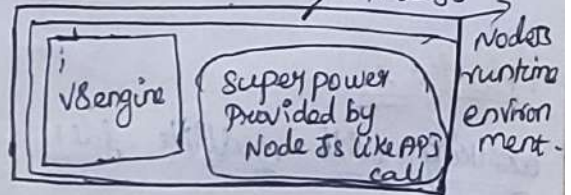 V8engine
Super power
Provided by
Node Js like API
call
NodeJS
runtime
environ
ment.